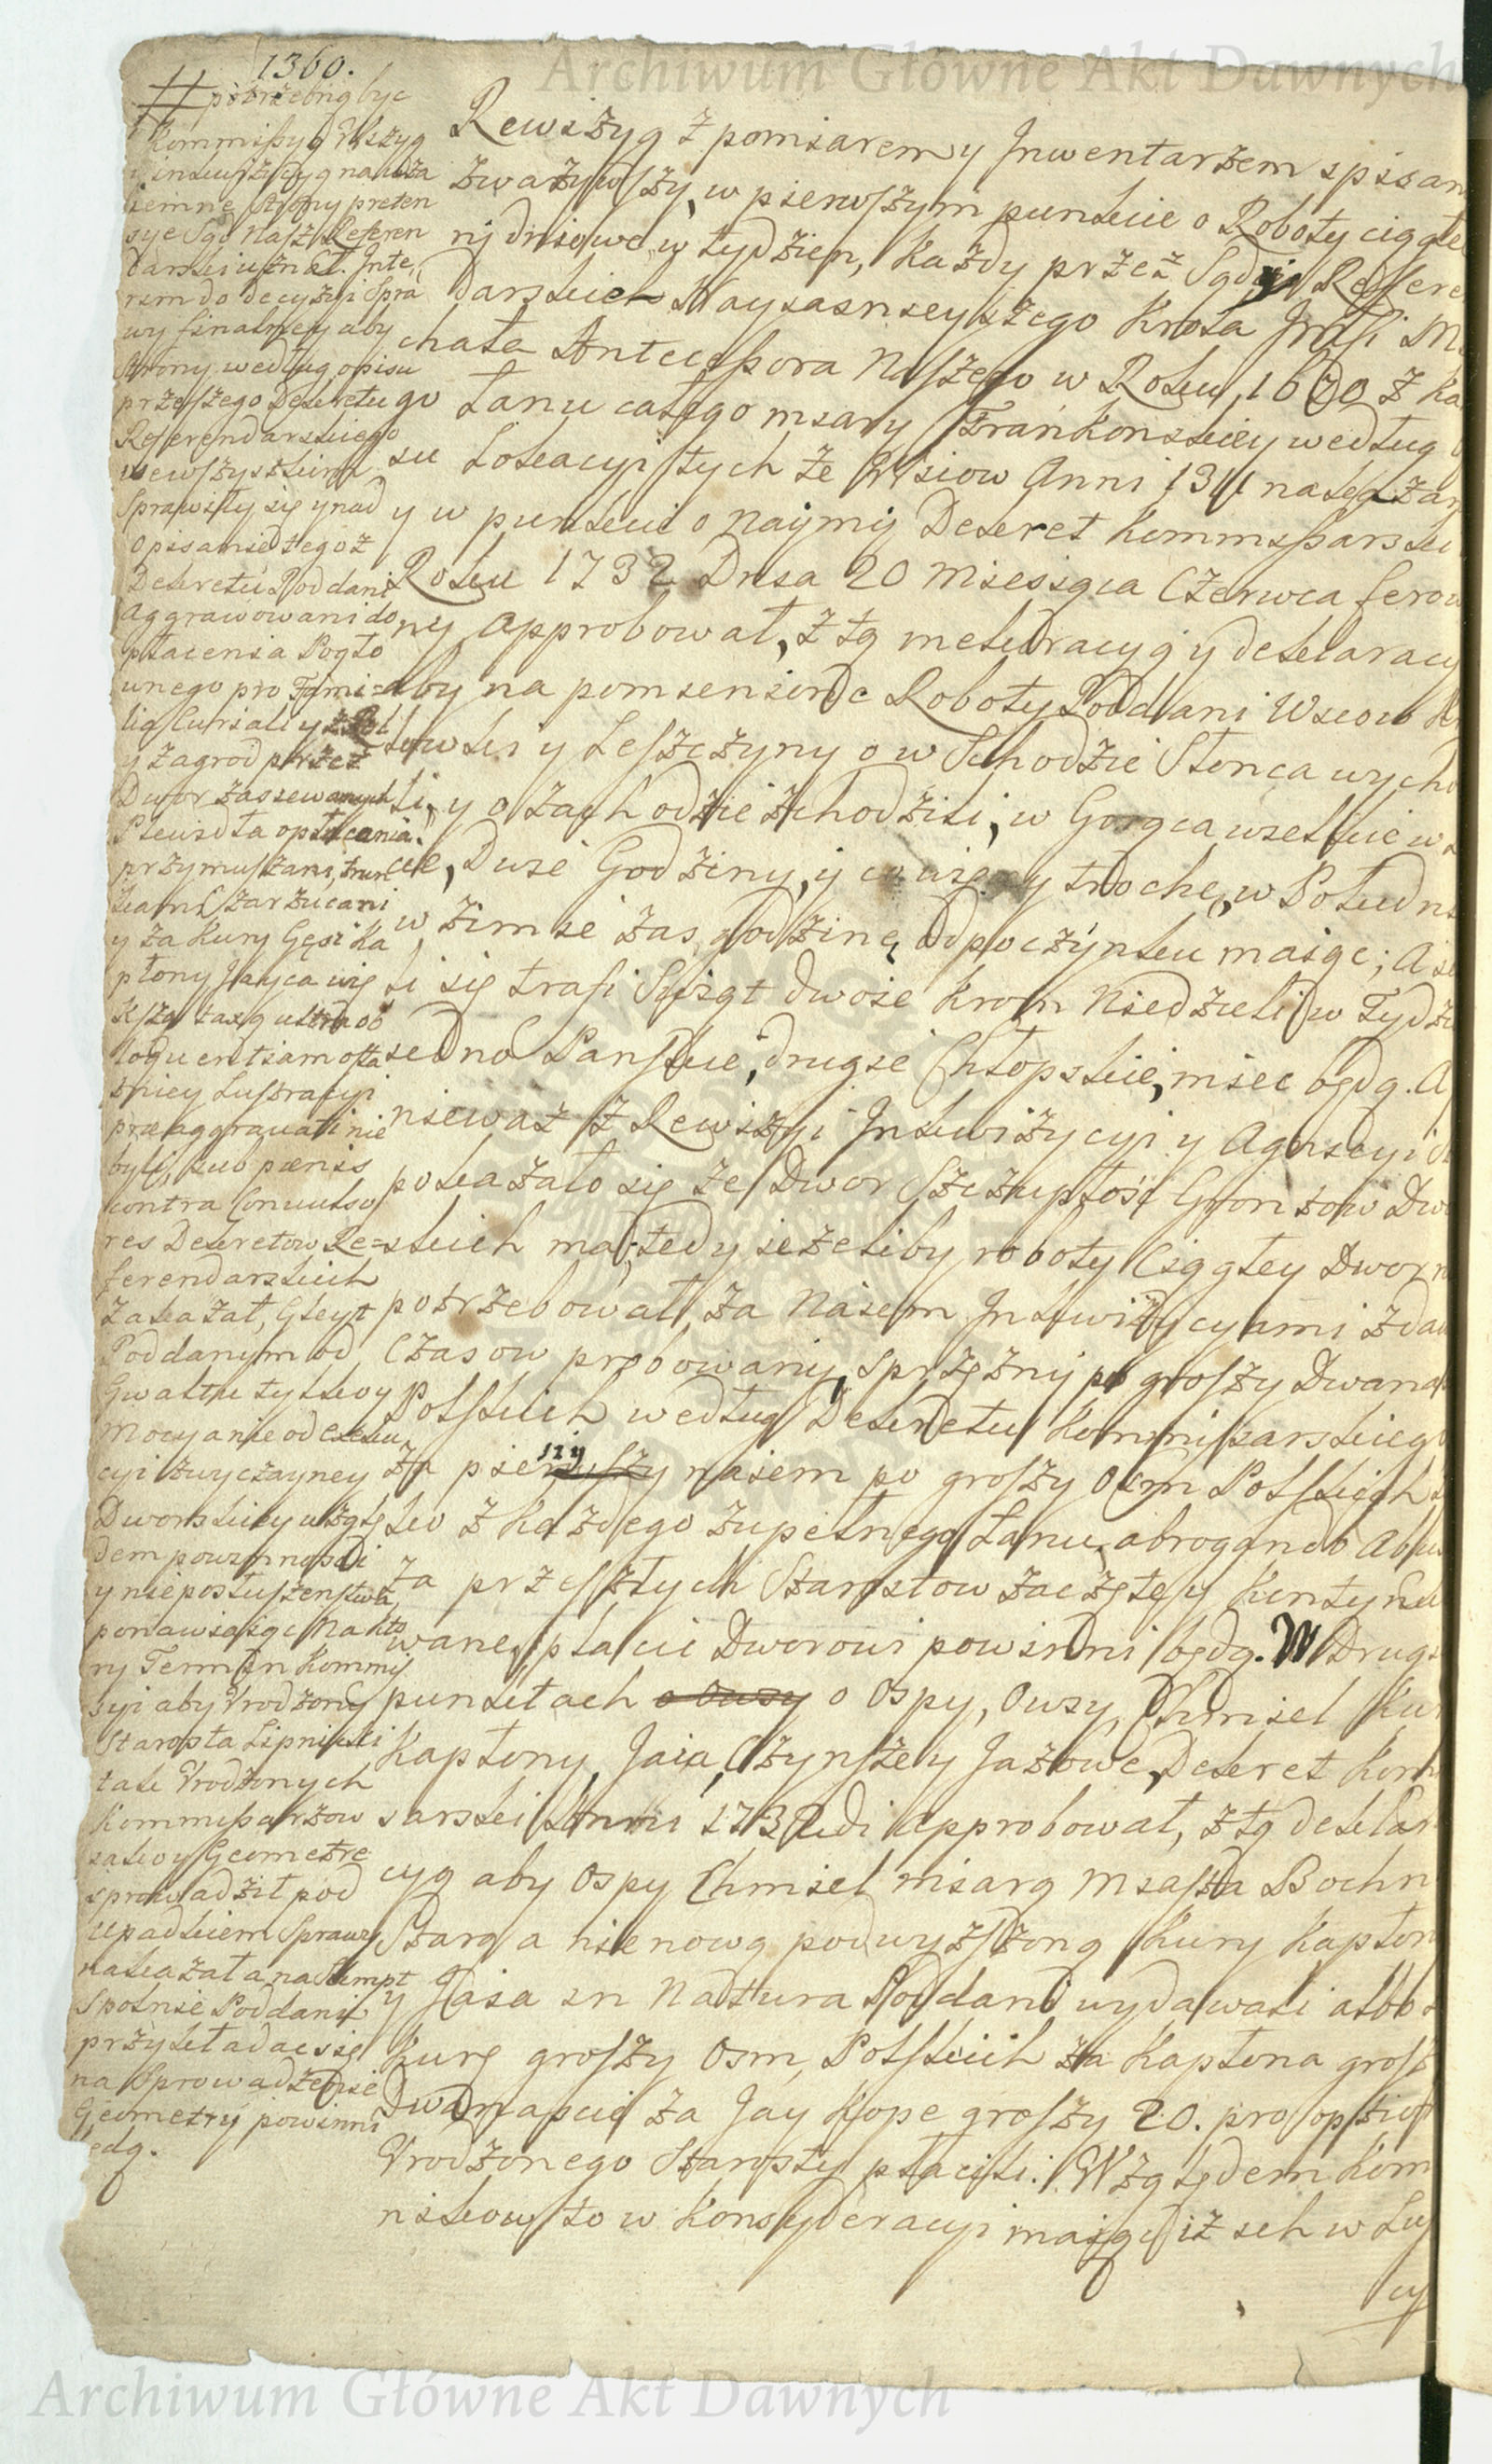 1360.
# potrzebną być
Kommissyą Wizyą
i inkwizycyą na wza
iemne strony preten
sye Sąd Nasz Referen
darski uznał. Inte
rim do decyzyi Spra
wy finalney aby
strony według opisu
przeszłego Dekretu
Referendarskiego
we wszystkim
Sprawiły się y nad
opisanie tegoż
Dekretu Poddani
aggrawowani do
płacenia Pogło
wnego pro Fami=
lia Curiali y z Rol
y zagrod przez
Dwor zasiewanych
Pleuidła opłacania
przymuszani, trun
kami zarzucani
y za Kury Gęsi Ka
płony Jayca wię
kszą taxą ultra ob
loquentiam osta
tniey Lustracyi
præaggravati nie
byli, sub pœnis
contra Convulso
res Dekretow Re=
ferendarskich
zakazał, Gleyt
Poddanym od
Gwałtu tylko y
Mocy a nie od exeku
cyi zwyczayney
Dworskiey wzglę
dem powinności
y nieposłuszeństwa
ponawiaiąc Na kto
ry Termin Kommis
syi aby Urodzony
Starosta Lipnicki
tak Urodzonych
Kommissarzow
iako y Geometrę
sprowadził pod
upadkiem Sprawy
nakazał a na Sumpt
Spolnie Poddani
przykładac się
na Sprowadzenie
Geometry powinni
będą.
Rewizyą z pomiarem y Inwentarzem spisan
zważywszy, w pierwszym punkcie o Roboty ciągłe
ny dniowe w tydzien, każdy przez Sąd Refere
darskich Nayiasnieyszego Krola Jmści Mi
chała Antecessora Naszego w Roku 1670 z Ka
go Łanu całego miary Frankonskiey według
su Lokacyi tych że Wsiow Anni 1311 nakazan
y w punkcie o Naymy Dekret Kommissarski
Roku 1732 Dnia 20 Miesiąca Czerwca ferow
ny approbował, z tą meliracyą y deklaracy
aby na pomienione Roboty Poddani Wsiow
kowki y Leszczyny o w Schodzie Słonca wycho
li, y o zachodzie zchodzili, w Gorąca wielkie w
cie, Dwie Godziny, y trochę, w Południ
w zimie zas godzinę odpoczynku maiąc; A ie
li się trafi Swiąt dwoie krom Niedzieli w Tydzi
iedno Panskie, drugie Chłopskie, miec będą. A
niewaz z Rewizyi Inkwizycyi y Aquscyi
pokazało się że Dwor Szczupłość Gruntow Dwo
skich ma, tedy ieżeliby roboty Ciągłey Dwor n
potrzebował, za Naiem Inkwizycyami zda
Czasow probowany, sprzężny po groszy Dwana
Polskich według Dekretu Kommissarskieg
za pieszy naiem po groszy Osm Polskich
ko z każdego zupełnego Łanu, abrogando Abu
za przeszłych Starostow zaczęte y kontynu
wane, płacic Dworowi powinni będą. W Drugi
punktach o Owsy o Ospy, Owsy, Chmiel Kur
Kapłony, Jaia, Czynsze y Jazowe, Dekret Kom
sarski Anni 1732di approbował, z tą deklar
cyą aby Ospy Chmiel miarą Miasta Bochn
Starą a nie nową podwyższoną Kury Kapłon
y Jaia in Natura Poddani wydawali albo
Kurę groszy Osm, Polskich za Kapłona grosz
Dwanascie za Jay Kopę groszy 20. pro optione
Urodzonego Starosty płacili. Względem Kom
nikow to w Konsyderacyi maiąc iż ich w Lus
cy